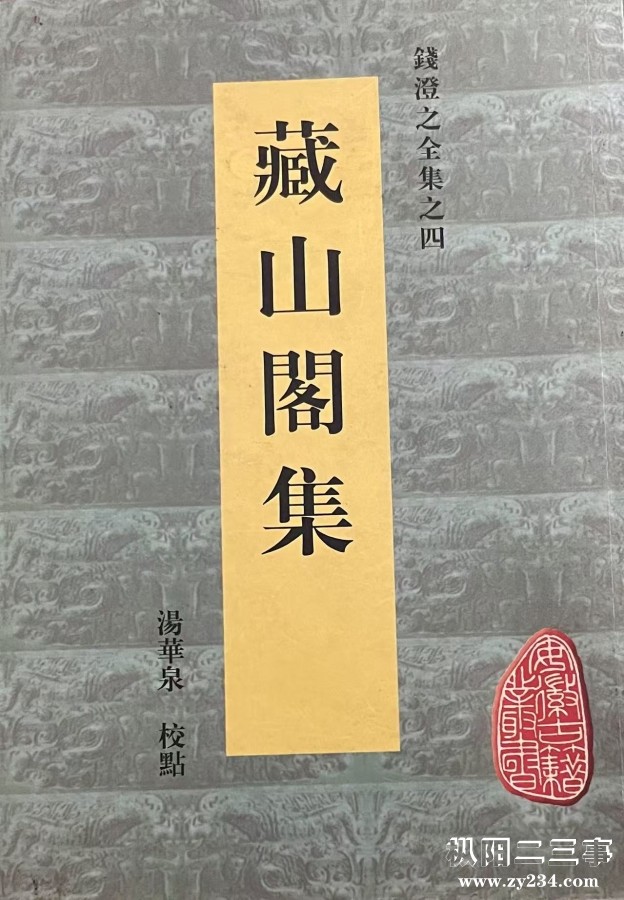 錢澄之全集之四
藏山閣集
湯華泉 校點
安徽古籍叢書
枞阳二三事
www.zy234.com